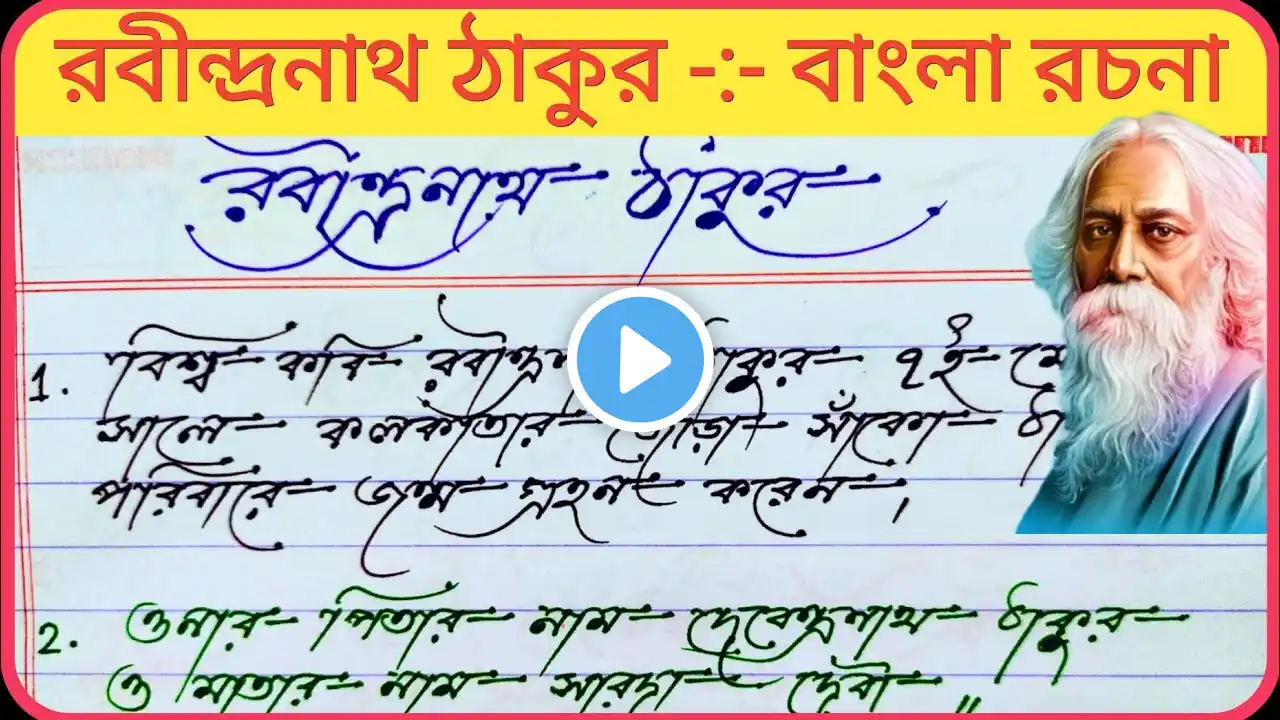 রবীন্দ্রনাথ ঠাকুর -:- বাংলা রচনা
রবীন্দ্রনাথ ঠাকুর
1. বিশ্ব কবি ঠাকুর ৭ই
সালে কলকাতার সাঁকো
পরিবারে জন্ম গ্রহন করেন।
2. ওনার পিতার নাম দেবেন্দ্রনাথ ঠাকুর
ও মাতার নাম সারদা দেবী॥